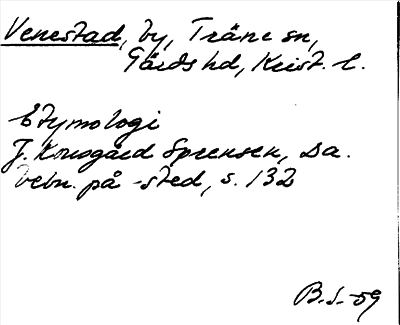 Venestad, by, Träne sn,
Gärds hd, Krist. l.
Etymologi
J. Kousgård Sørensen, Da.
bebn. på -sted, s. 132
B.S. -59